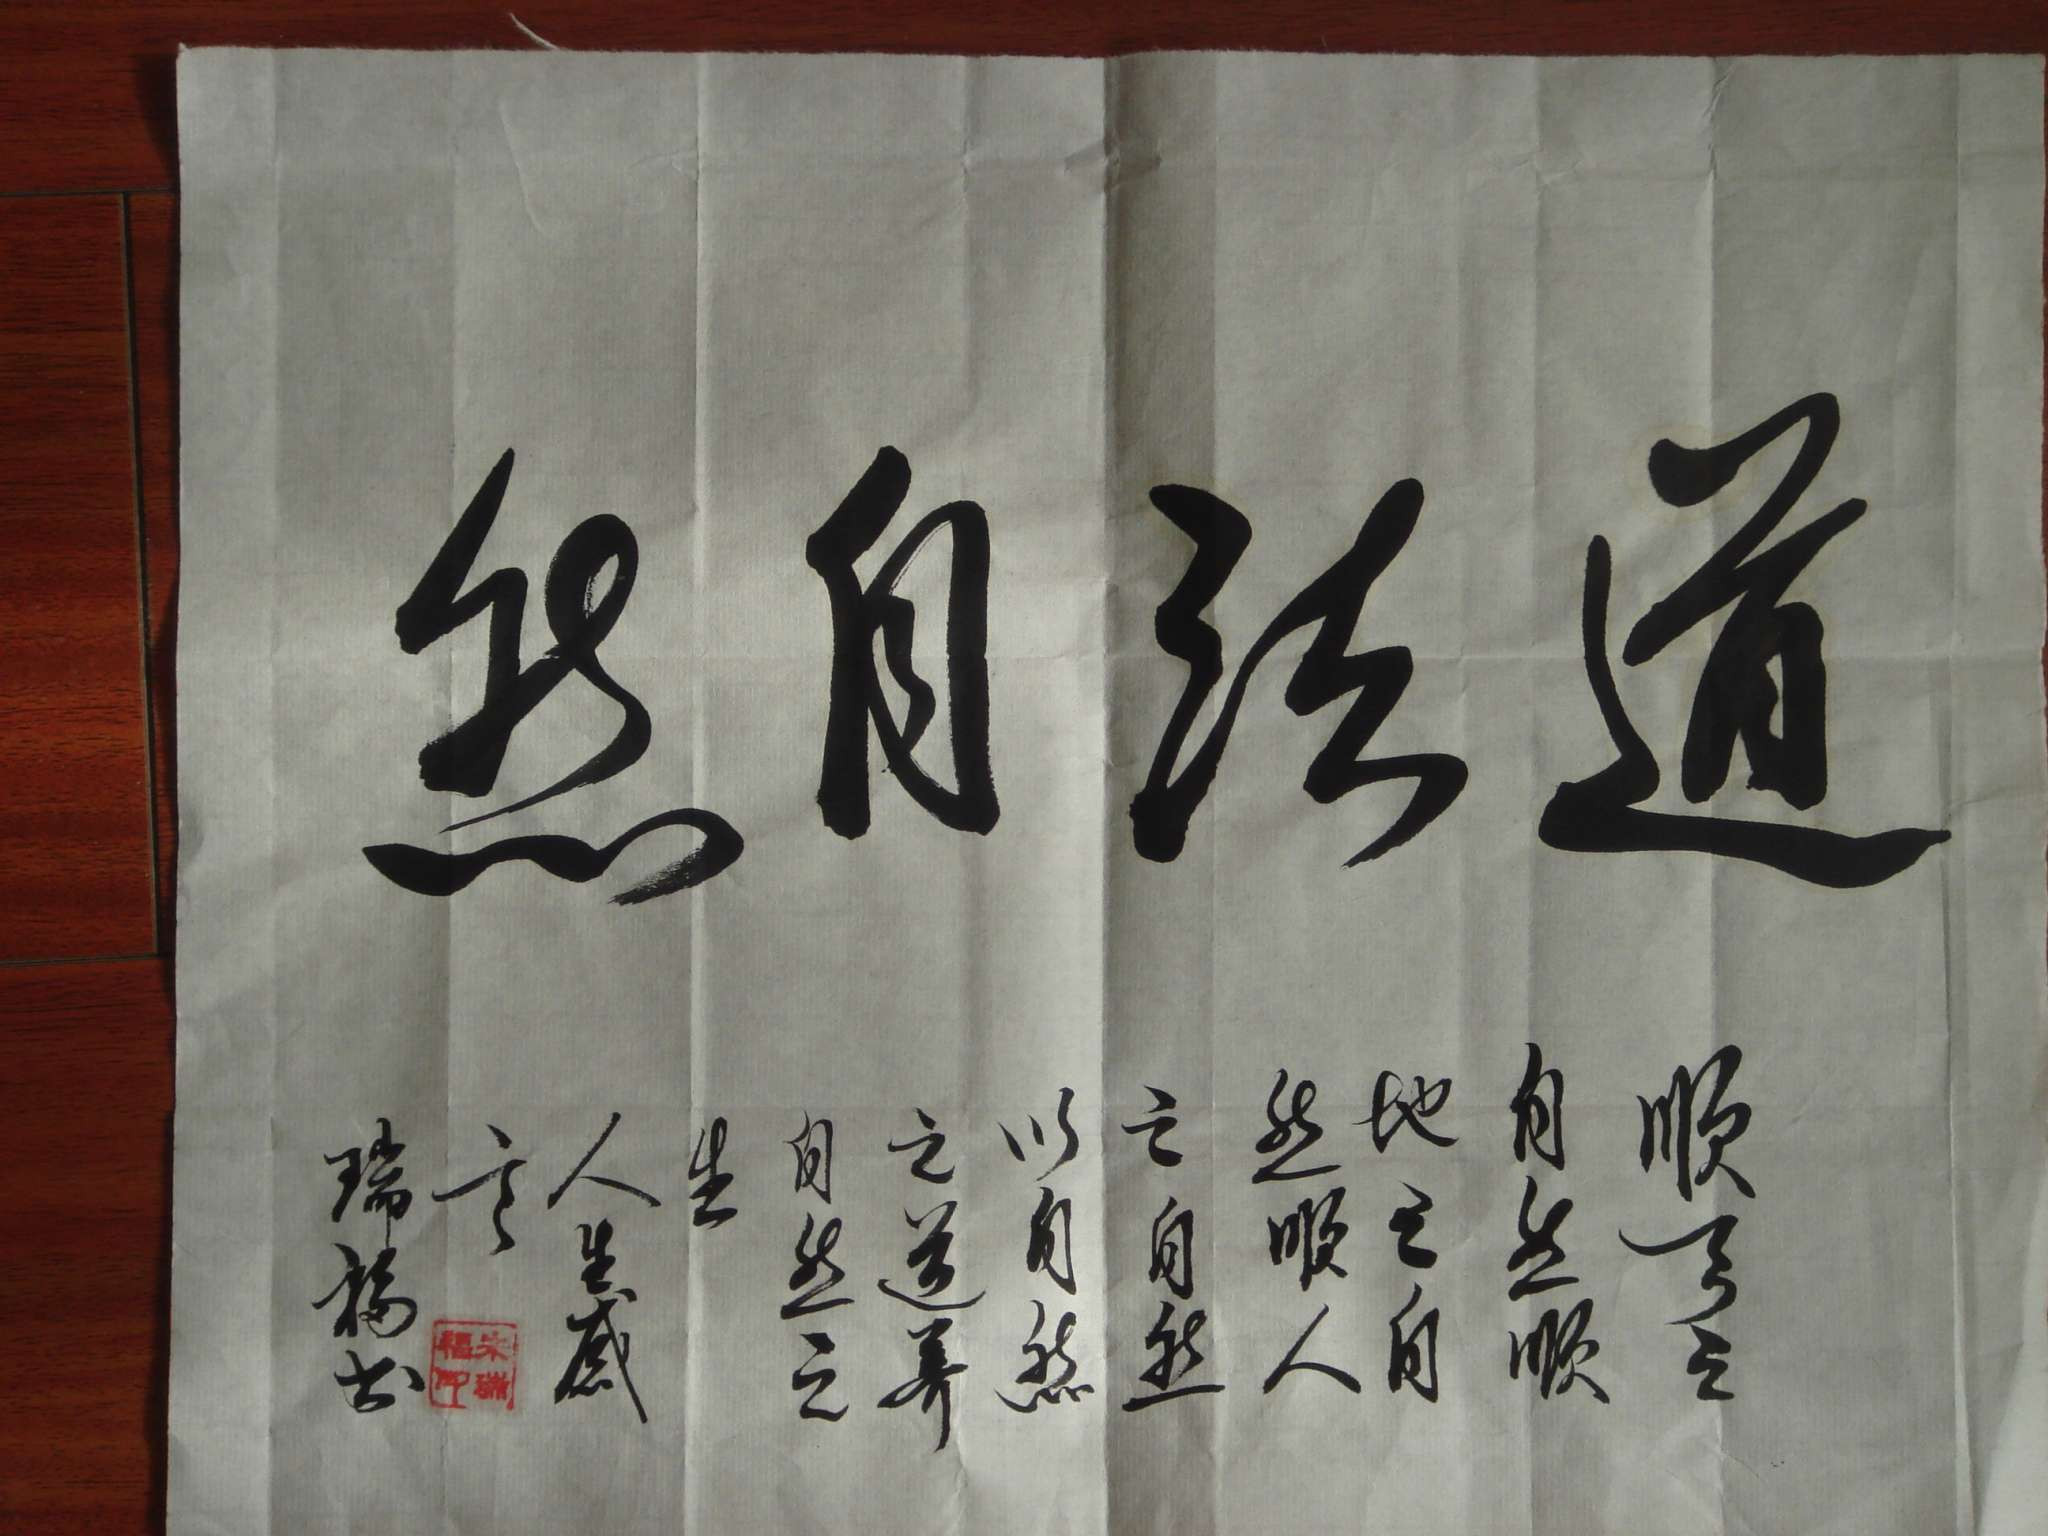 道法自然
顺天之
自然顺
地之自
然顺人
之自然
以自然
之道养
自然之
生
人生感
言
瑞福书
宋瑞福印